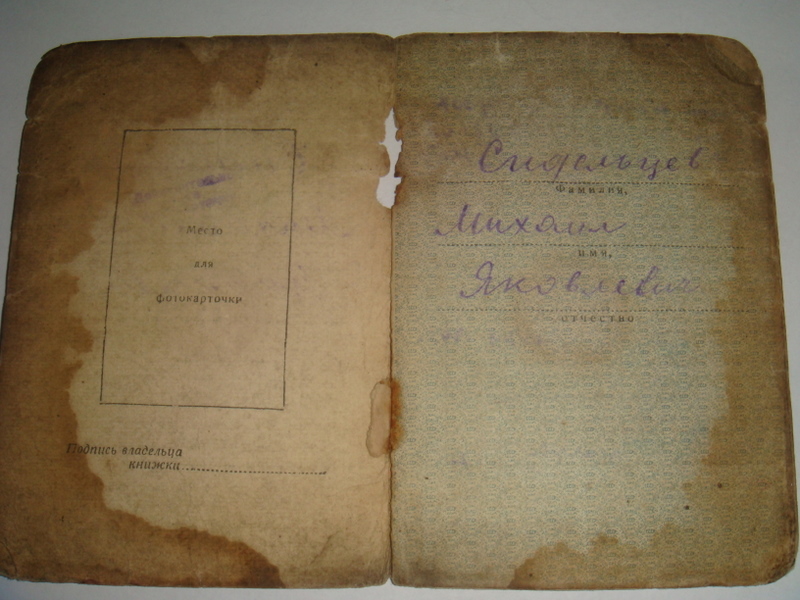 Место
для
фотокарточки
Подпись владельца
книжки
Сидельцев
Фамилия,
Михаил
имя,
Яковлевич
отчество